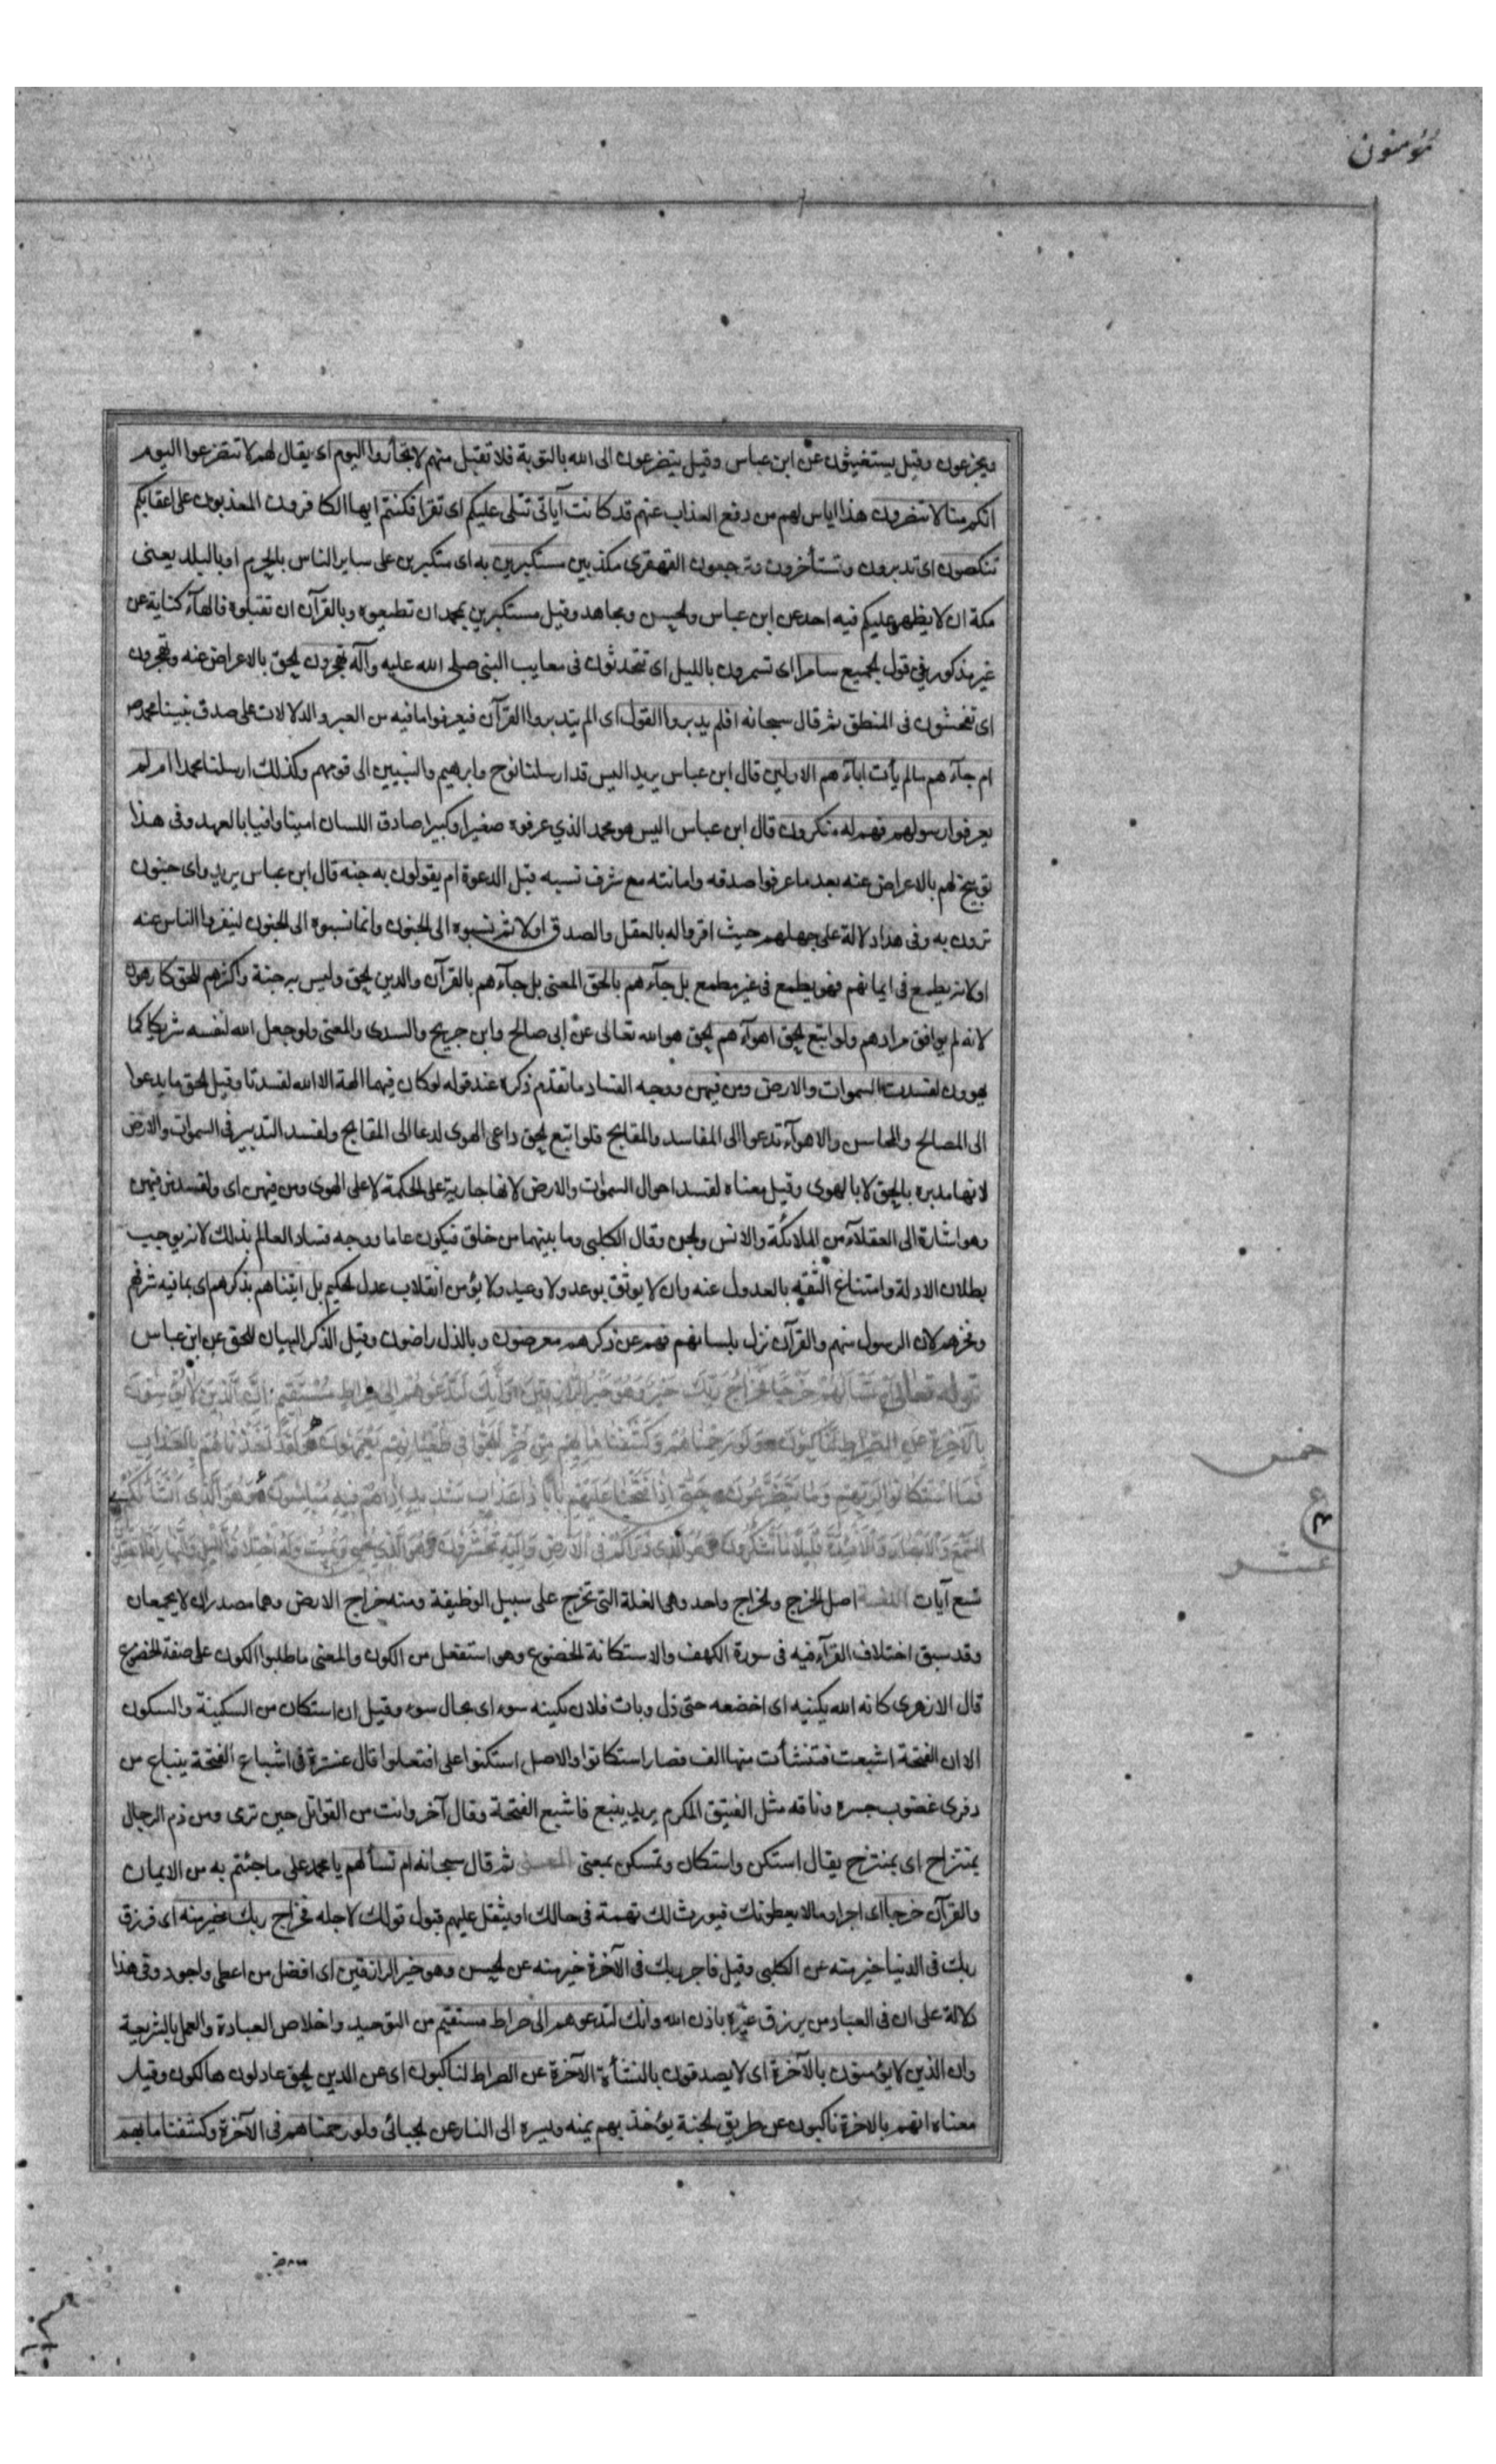 مؤمنون
ويجزعون وقيل يستغيثون عن ابن عباس وقيل يتضرعون الى الله بالتوبة فلا تقبل منهم لا تجأروا اليوم اى يقال لهم لا تتضرعوا اليوم
انكم منا لا تنصرون هذا اياس لهم من دفع العذاب عنهم قد كانت آياتى تتلى عليكم اى تقرا فكنتم ايها الكافرون المعذبون على اعقابكم
تنكصون اى تدبرون وتستأخرون وترجعون القهقرى مكذبين مستكبرين به اى متكبرين على ساير الناس بالحرم او بالبلد يعنى
مكة ان لا يظهر عليكم فيه احد عن ابن عباس والحسن ومجاهد وقيل مستكبرين بمحمد ان تطيعوه وبالقرآن ان تقبلوه فالهآء كناية عن
غير مذكور في قول الجميع سامرا اى تسمرون بالليل اى تتحدثون فى معايب النبى صلى الله عليه وآله تهجرون الحق بالاعراض عنه وتهجرون
اى تفحشون فى المنطق ثم قال سبحانه افلم يدبروا القول اى الم يتدبروا القرآن فيعرفوا ما فيه من العبر والدلالات على صدق نبينا محمد ص
ام جآءهم ما لم يأت ابآءهم الاولين قال ابن عباس يريد اليس قد ارسلنا نوح وابرهيم والنبيين الى قومهم وكذلك ارسلنا محمدا ام لم
يعرفوا رسولهم فهم له منكرون قال ابن عباس اليس هو محمد الذي عرفوه صغيرا وكبيرا صادق اللسان امينا وافيا بالعهد وفى هذا
توبيخ لهم بالاعراض عنه بعد ما عرفوا صدقه وامانته مع شرف نسبه قبل الدعوة ام يقولون به جنه قال ابن عباس يريد واى جنون
ترون به وفى هذا دلالة على جهلهم حيث اقروا له بالعقل والصدق اولا ثم نسبوه الى الجنون وانما نسبوه الى الجنون لينفروا الناس عنه
او لانه يطمع فى ايمانهم فهو يطمع فى غير مطمع بل جآءهم بالحق المعنى بل جآءهم بالقرآن والدين الحق وليس به جنة واكثرهم للحق كارهون
لانه لم يوافق مرادهم ولو اتبع الحق اهوآءهم الحق هو الله تعالى عن ابى صالح وابن جريح والسدى والمعنى ولو جعل الله لنفسه شريكا كما
يهوون لفسدت السموات والارض ومن فيهن ووجه الفساد ما تقدم ذكره عند قوله لو كان فيهما الهة الا الله لفسدتا وقيل الحق ما يدعوا
الى المصالح والمحاسن والاهوآء تدعوا الى المفاسد والمقابح فلو اتبع الحق داعى الهوى لدعا الى المقابح ولفسد التدبير فى السموات والارض
لانها مدبره بالحق لا بالهوى وقيل معناه لفسد احوال السموات والارض لانها جارية على الحكمة لا على الهوى ومن فيهن اى ولفسد من فيهن
وهو اشارة الى العقلآء من الملائكة والانس والجن وقال الكلبى وما بينهما من خلق فيكون عاما ووجه فساد العالم بذلك لانه يوجب
بطلان الادلة وامتناع الثقه بالمدلول عنه وان لا يوثق بوعد ولا وعيد ولا يؤمن انقلاب عدل الحكيم بل اتيناهم بذكرهم اى بما فيه شرفهم
وفخرهم لان الرسول منهم والقرآن نزل بلسانهم فهم عن ذكرهم معرضون وبالذل راضون وقيل الذكر البيان للحق عن ابن عباس
قوله تعالى أم تسألهم خرجا فخراج ربك خير وهو خير الرازقين وإنك لتدعوهم إلى صراط مستقيم وإن الذين لا يؤمنون
بالآخرة عن الصراط لناكبون ولو رحمناهم وكشفنا ما بهم من ضر للجوا فى طغيانهم يعمهون ولقد أخذناهم بالعذاب
فما استكانوا لربهم وما يتضرعون حتى إذا فتحنا عليهم بابا ذا عذاب شديد إذا هم فيه مبلسون وهو الذى أنشأ لكم
السمع والأبصار والأفئدة قليلا ما تشكرون وهو الذى ذرأكم فى الأرض وإليه تحشرون وهو الذى يحيى ويميت وله اختلاف الليل والنهار أفلا تعقلون
خمس
ع
عشر
تسع آيات اللغة اصل الخرج والخراج واحد وهى الغلة التى تخرج على سبيل الوظيفة ومنه خراج الارض وهما مصدران لا يجمعان
وقد سبق اختلاف القرآء فيه فى سورة الكهف والاستكانة الخضوع وهو استفعل من الكون والمعنى ما طلبوا الكون على صفة الخضوع
قال الازهرى كانه الله يكنيه اى اخضعه حتى ذل وبات فلان بكينه سوء اى بحال سوء وقيل ان استكان من السكينة والسكون
الا ان الفتحة اشبعت فتنشأت منها الف فصار استكانوا والاصل استكنوا على افتعلوا قال عنترة فى اشباع الفتحة ينباع من
دفرى غضوب جسره وناقه مثل الفنيق المكرم يريد ينبع فاشبع الفتحة وقال آخر وانت من القوائل حين ترى ومن ذم الرجال
بمنتزاح اى بمنتزح يقال استكن واستكان وتمسكن بمعنى المعنى ثم قال سبحانه ام تسألهم يا محمد على ما جئتم به من الايمان
والقرآن خرجا اى اجرا ومالا يعطونك فيورث لك تهمة فى حالك او يثقل عليهم قبول قولك لاجله فخراج ربك خير منه اى فرزق
ربك فى الدنيا خير منه عن الكلبى وقيل فاجر ربك فى الآخرة خير منه عن الحسن وهو خير الرازقين اى افضل من اعطى واجود وفى هذا
دلالة على ان فى العباد من يرزق غيره باذن الله وانك لتدعوهم الى صراط مستقيم من التوحيد واخلاص العبادة والعمل بالشريعة
وان الذين لا يؤمنون بالآخرة اى لا يصدقون بالنشأة الآخرة عن الصراط لناكبون اى عن الدين الحق عادلون هالكون وقيل
معناه انهم بالاخرة ناكبون عن طريق الجنة يؤخذ بهم يمنه ويسره الى النار عن الجبائى ولو رحمناهم فى الآخرة وكشفنا ما بهم